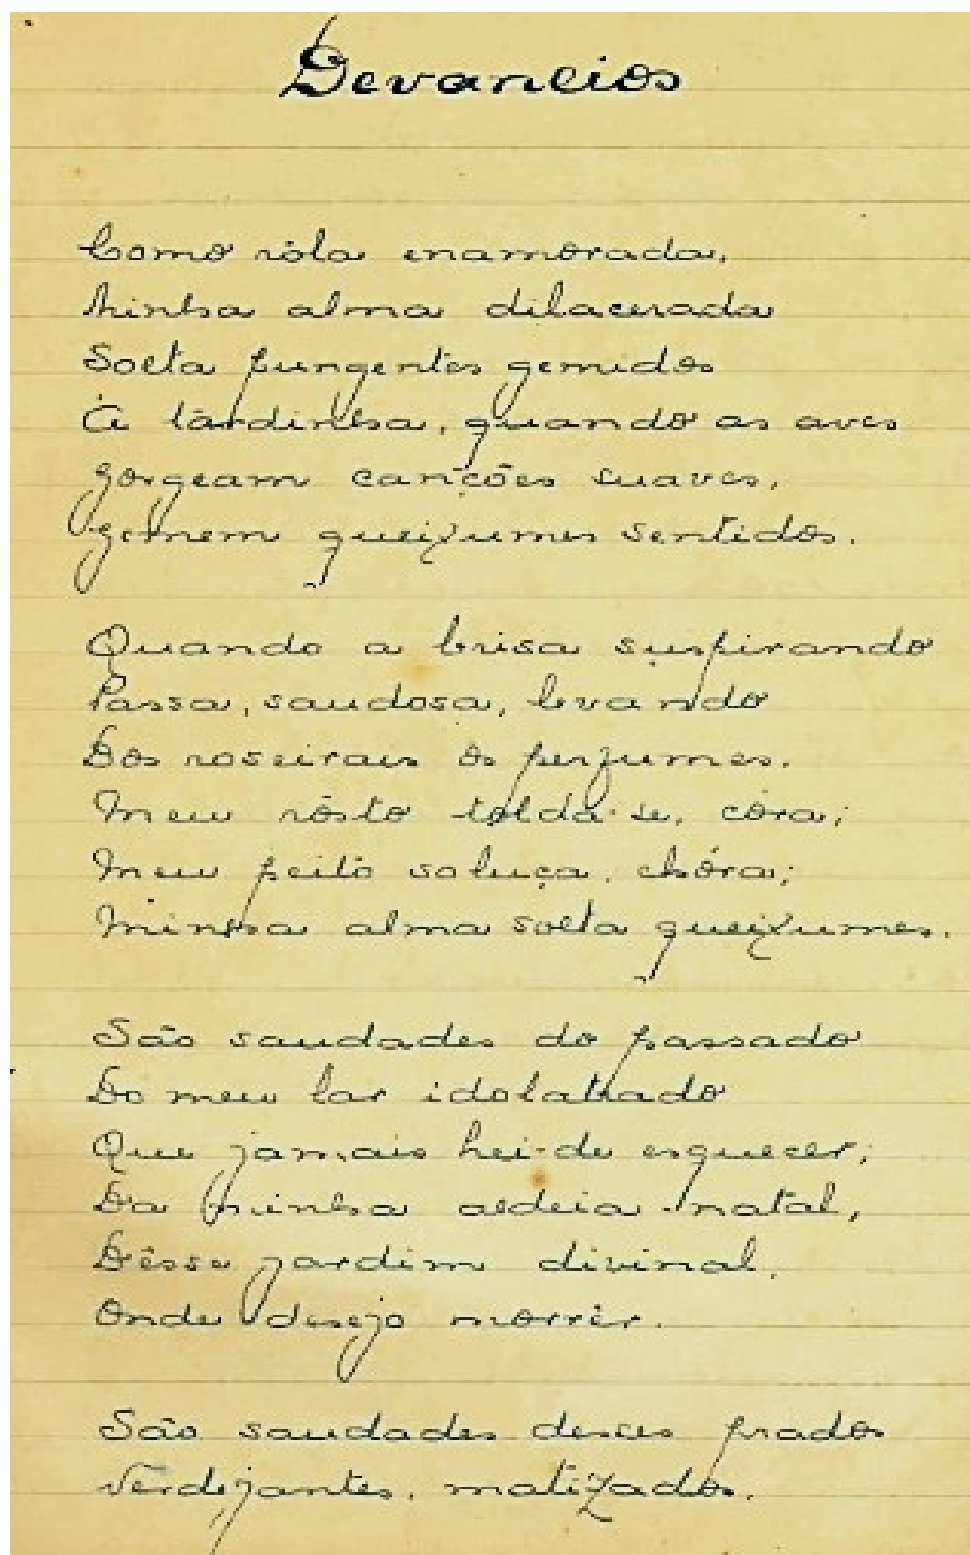 Devaneios
Como rôla enamorada,
Minha alma dilacerada
Solta pungentes gemidos
À tardinha, quando as aves
gorgeam canções suaves,
gemem queixumes sentidos.
Quando a brisa suspirando
Passa, saudosa, levando
Dos roseirais os perfumes.
Meu rôsto tolda-se, córa;
Meu peito soluça, chóra;
Minha alma solta queixumes.
São saudades do passado
Do meu lar idolatrado
Que jamais hei-de esquecer;
Da minha aldeia natal,
Dêsse jardim divinal,
Onde desejo morrer.
São saudades desses prados
Verdejantes, matizados,